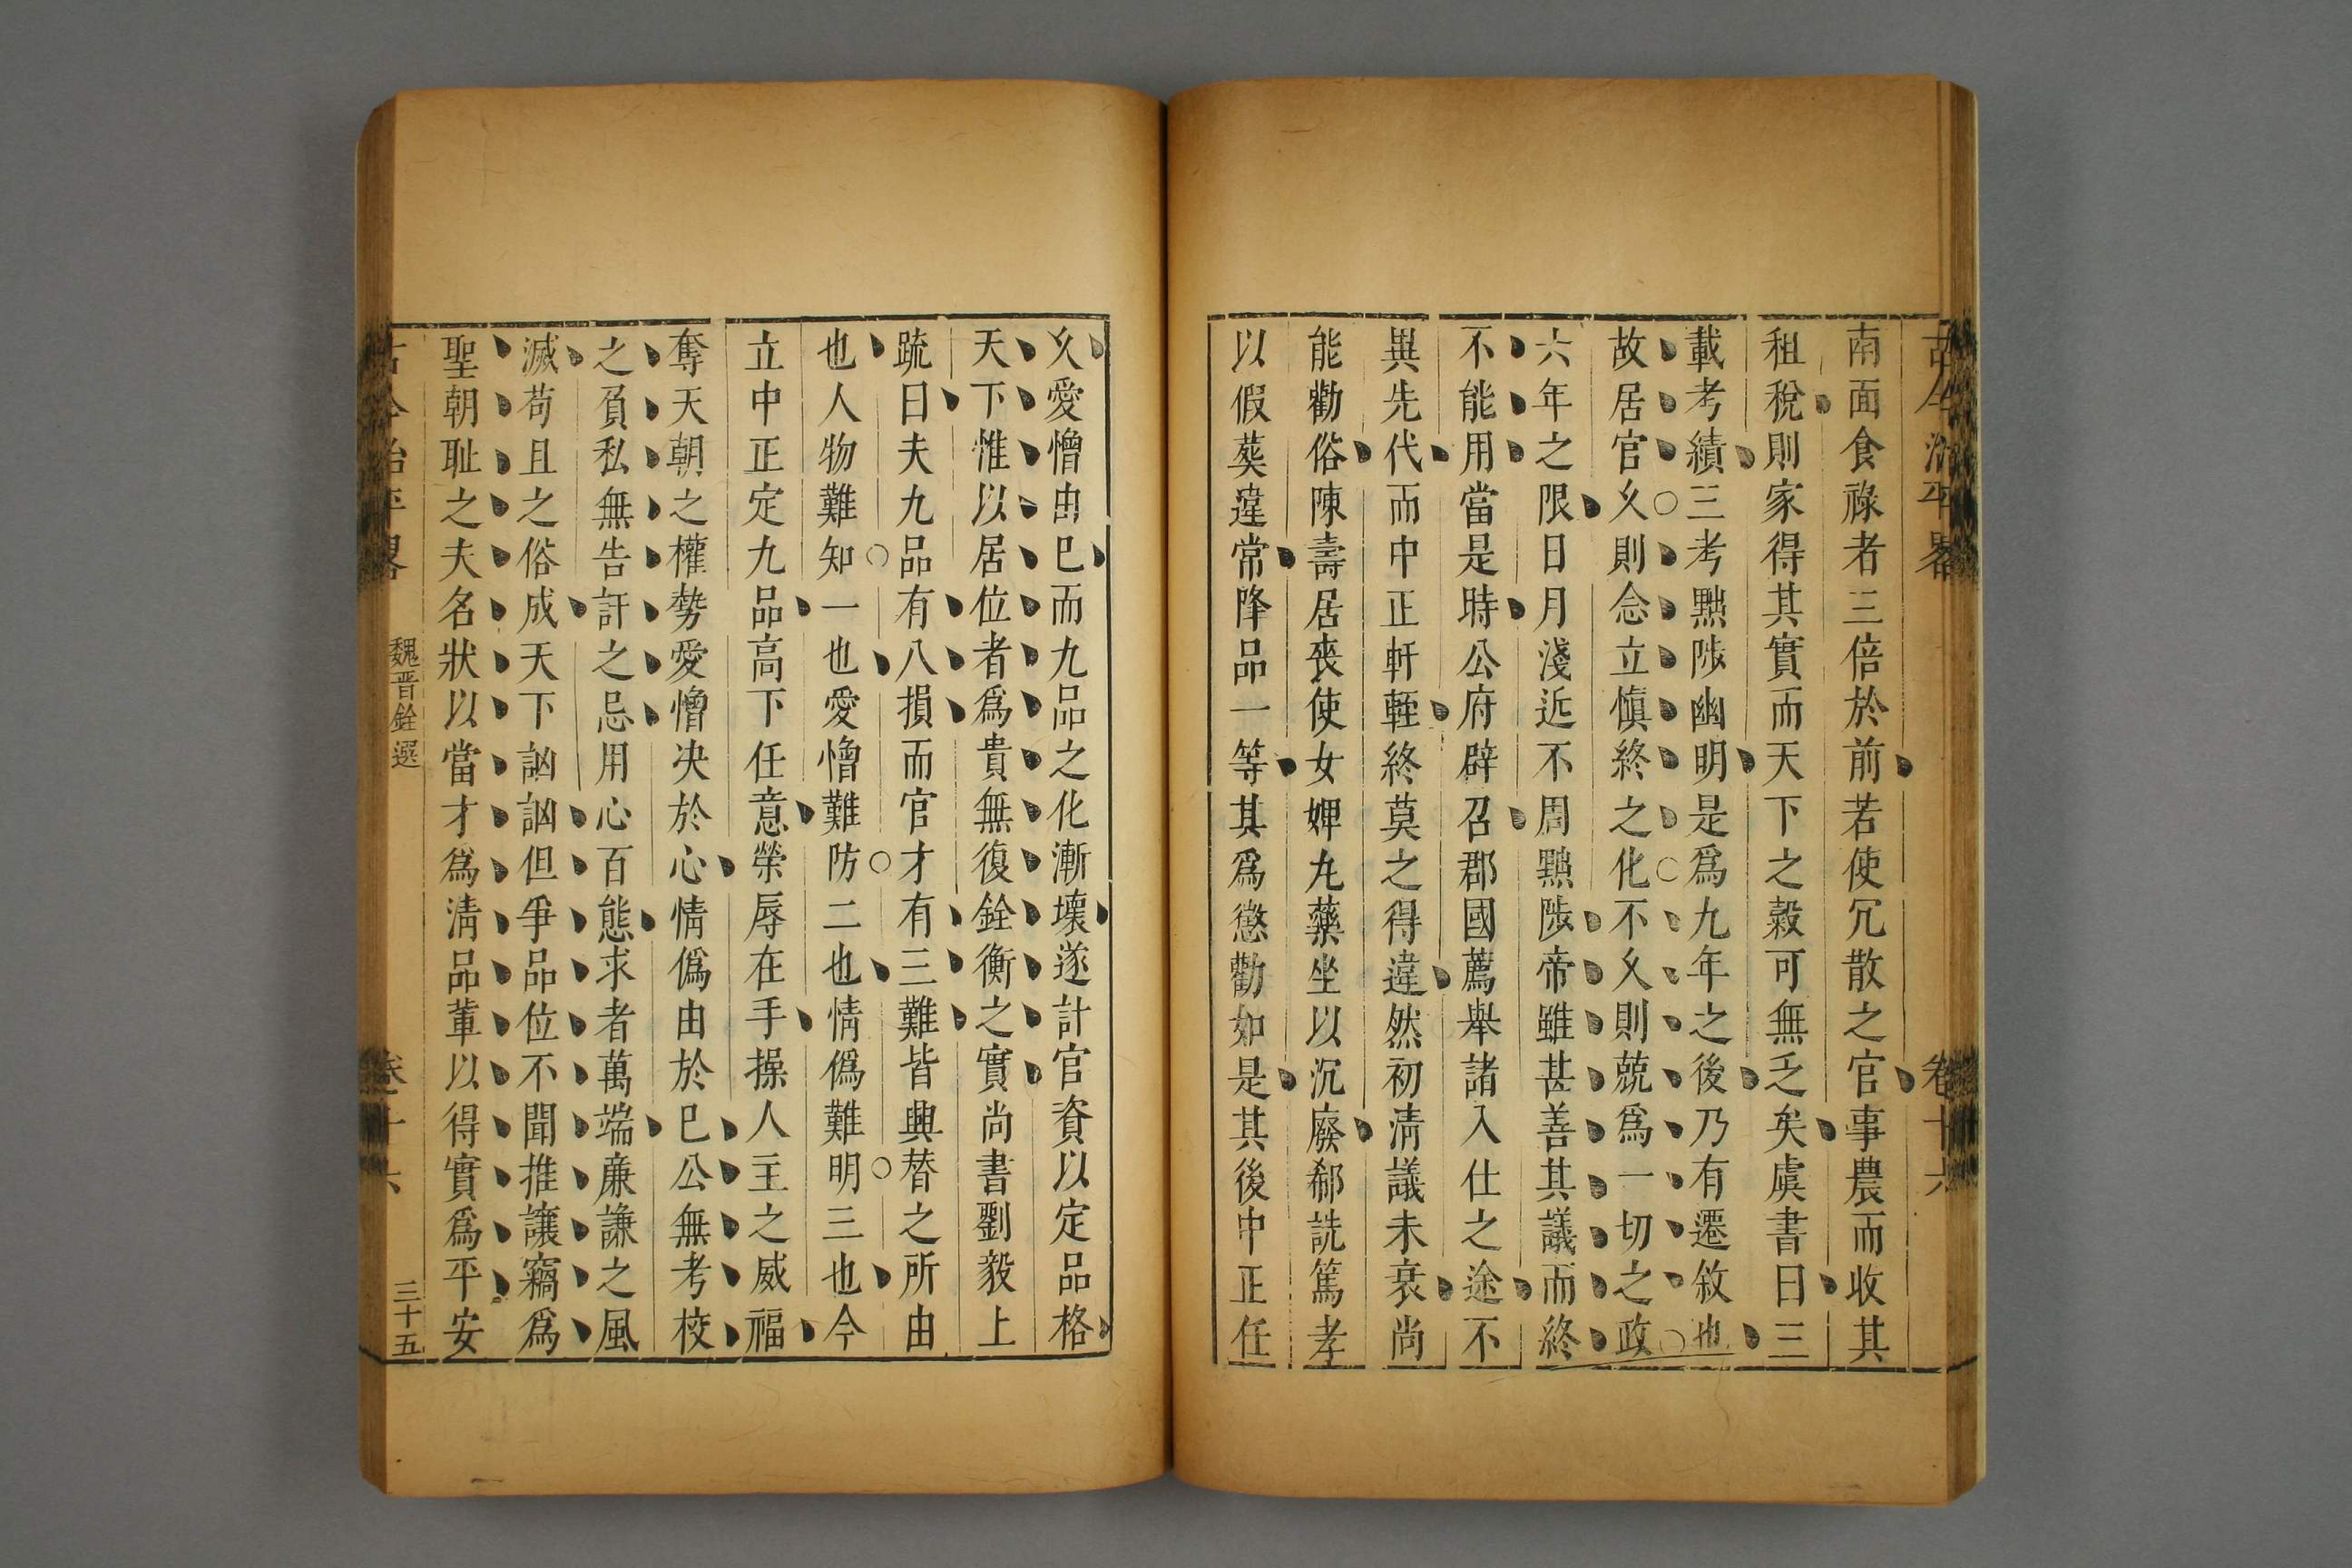 古今治平畧
卷十六
南面食祿者三倍於前若使冗散之官事農而收其
租稅則家得其實而天下之穀可無乏矣虞書曰三
載考績三考黜陟幽明是爲九年之後乃有遷敘也
故居官久則念立慎終之化不久則兢爲一切之政
六年之限日月淺近不周黜陟帝雖甚善其議而終
不能用當是時公府辟召郡國薦舉諸入仕之途不
異先代而中正軒輊終莫之得違然初清議未衰尚
能勸俗陳壽居喪使女婢丸藥坐以沉廢郤詵篤孝
以假葬違常降品一等其爲懲勸如是其後中正任
久愛憎由已而九品之化漸壞遂計官資以定品格
天下惟以居位者爲貴無復銓衡之實尚書劉毅上
疏曰夫九品有八損而官才有三難皆興替之所由
也人物難知一也愛憎難防二也情僞難明三也今
立中正定九品高下任意榮辱在手操人主之威福
奪天朝之權勢愛憎决於心情僞由於已公無考校
之負私無告訐之忌用心百態求者萬端廉謙之風
滅苟且之俗成天下訩訩但爭品位不聞推讓竊爲
聖朝耻之夫名狀以當才爲清品輩以得實爲平安
古今治平畧
魏晋銓選
卷十六
三十五